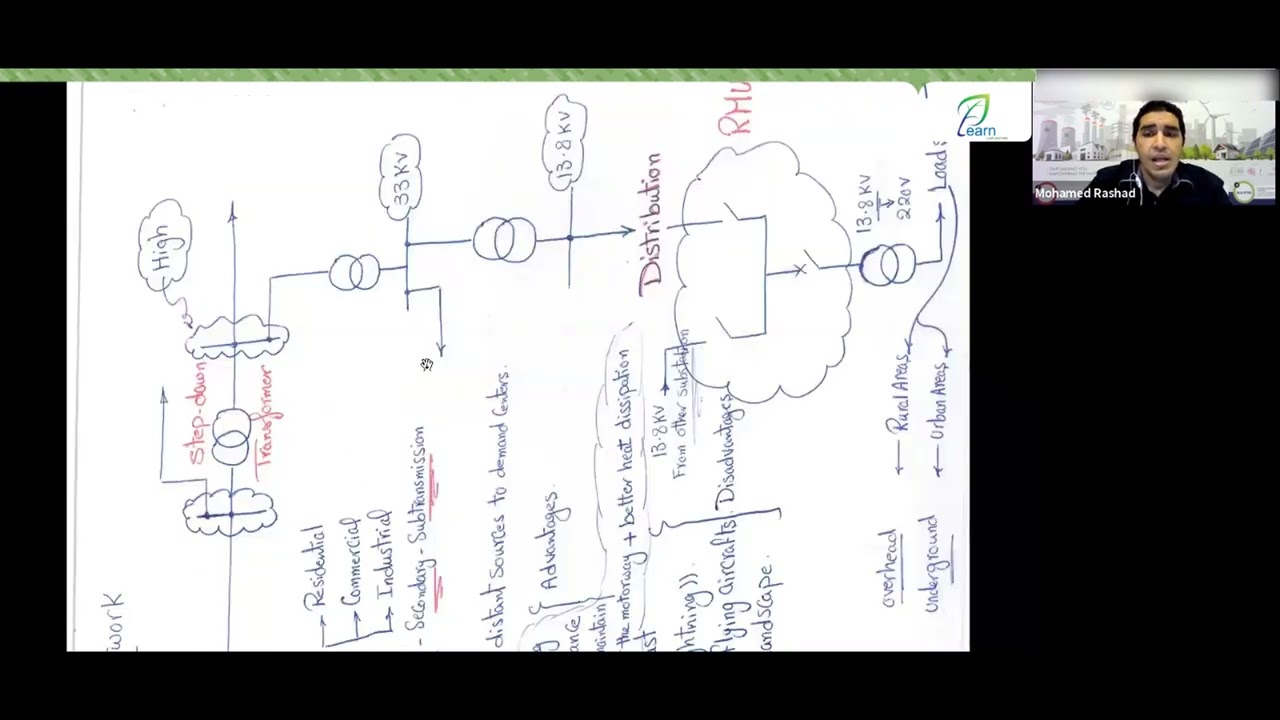 High
33 KV
13.8 KV
Distribution
RMU
13.8 KV
220V
Loads
Step-down
Transformer
13.8 KV
From other substation
Rural Areas
Urban Areas
overhead
Underground
Residential
Commercial
Industrial
- Secondary - Subtransmission
distant sources to demand Centers.
Advantages.
the motorway + better heat dissipation
Disadvantages
Flying aircrafts.
andscape.
ghtning)).
ance
maintain
ast
work
Learn
Mohamed Rashad